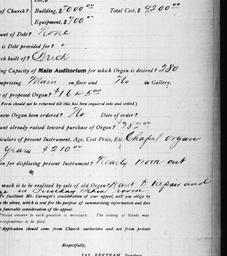 of Church? Building, $7000.00 Total Cost, $9200.00
Equipment, $700.00
unt of Debt? None
is Debt provided for?
ch built of? Brick
ing Capacity of Main Auditorium for which Organ is desired? 280
mprising Main on floor and No in Gallery.
of proposed Organ? $1645.00
(Form should not be returned till this has been enquired into and settled.)
new Organ been ordered? No Date of order?
unt already raised toward purchase of Organ? $382.00
iculars of present Instrument, Age, Cost Price, Chapel organ
Years $210.00
on for displacing present Instrument? Nearly worn out
much is to be realized by sale of old Organ? Want to repair and
use in Sunday School room
In justice to Mr. Carnegie's consideration of your appeal, will you oblige by
in the above, which is sent for the purpose of summarizing information and does
a favorable consideration of the appeal.
Precise answer to each question is necessary.
respondence is not enough.
Application should come from Church authorities and not from private
Respectfully,
JAS. BERTRAM, Secretary